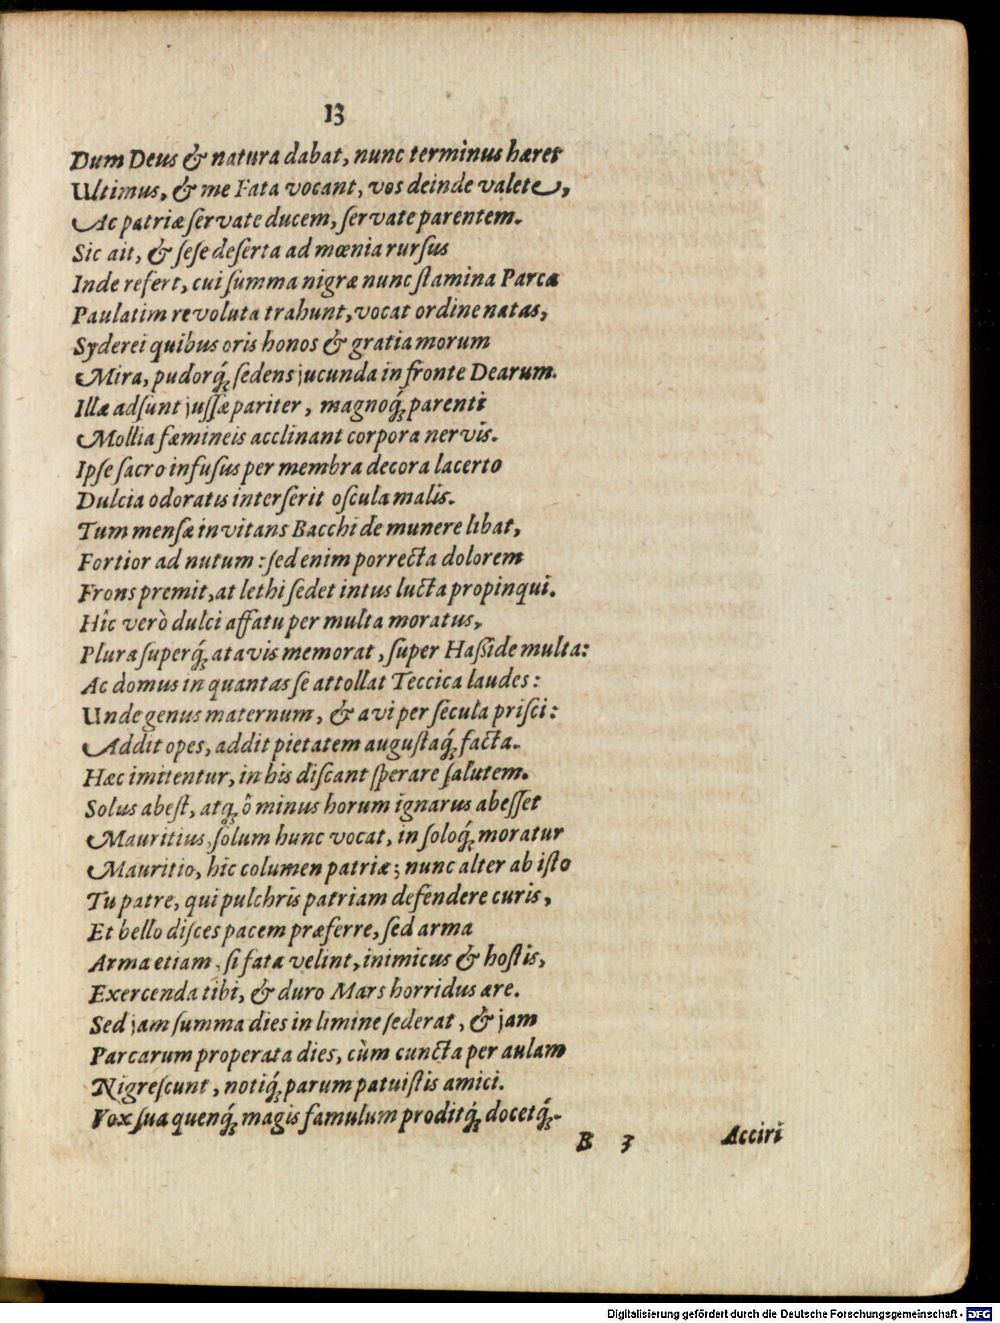 13
Dum Deus & natura dabat, nunc terminus hæret
Ultimus, & me Fata vocant, vos deinde valete,
Ac patriæ ſervate ducem, ſervate parentem.
Sic ait, & ſeſe deſerta ad mœnia rurſus
Inde refert, cui ſumma nigræ nunc ſtamina Parcæ
Paulatim revoluta trahunt, vocat ordine natas,
Syderei quibus oris honos & gratia morum
Mira, pudorq́; ſedens jucunda in fronte Dearum.
Illæ adſunt juſſæ pariter, magnoq́; parenti
Mollia fæmineis acclinant corpora nervis.
Ipſe ſacro infuſus per membra decora lacerto
Dulcia odoratis interſerit oſcula malis.
Tum menſæ invitans Bacchi de munere libat,
Fortior ad nutum: ſed enim porrecta dolorem
Frons premit, at lethi ſedet intus lucta propinqui.
Hîc verò dulci affatu per multa moratus,
Plura ſuperq́; atavis memorat, ſuper Haßide multa:
Ac domus in quantas ſe attollat Teccica laudes:
Unde genus maternum, & avi per ſecula priſci:
Addit opes, addit pietatem auguſtaq́; facta.
Hæc imitentur, in his diſcant ſperare ſalutem.
Solus abeſt, atq; ô minus horum ignarus abeſſet
Mauritius, ſolum hunc vocat, in ſoloq́; moratur
Mauritio, hic columen patriæ; nunc alter ab iſto
Tu patre, qui pulchris patriam defendere curis,
Et bello diſces pacem præferre, ſed arma
Arma etiam, ſi fata velint, inimicus & hoſtis,
Exercenda tibi, & duro Mars horridus ære.
Sed jam ſumma dies in limine ſederat, & jam
Parcarum properata dies, cùm cuncta per aulam
Nigreſcunt, notiq́; parum patuiſtis amici.
Vox ſua quenq́; magis famulum proditq́; docetq́;.
B 3 Acciri
Digitalisierung gefördert durch die Deutsche Forschungsgemeinschaft - DFG